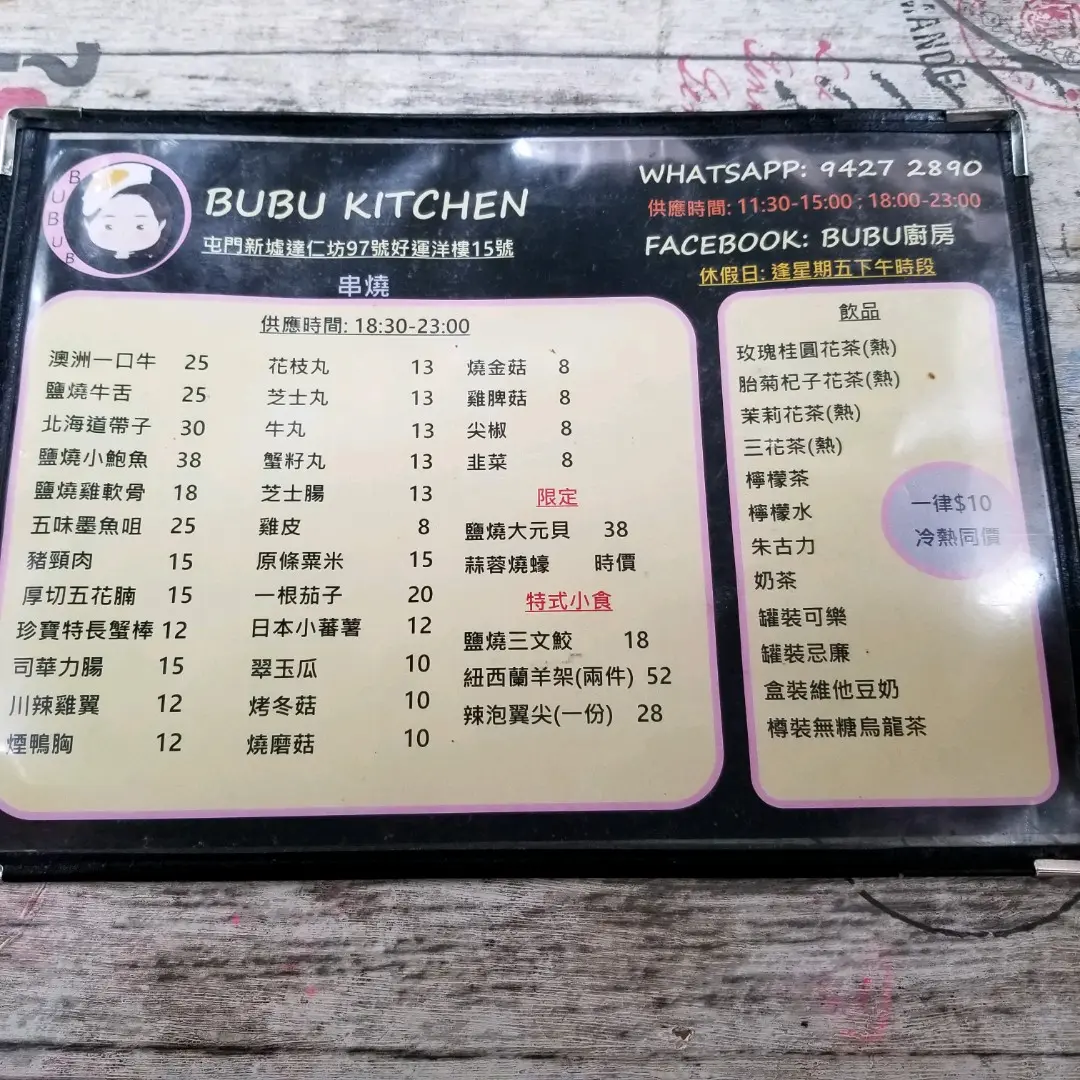 BUBU
BUBU KITCHEN
屯門新墟達仁坊97號好運洋樓15號
WHATSAPP: 9427 2890
供應時間: 11:30-15:00 ; 18:00-23:00
FACEBOOK: BUBU廚房
休假日: 逢星期五下午時段
串燒
供應時間: 18:30-23:00
澳洲一口牛 25
鹽燒牛舌 25
北海道帶子 30
鹽燒小鮑魚 38
鹽燒雞軟骨 18
五味墨魚咀 25
豬頸肉 15
厚切五花腩 15
珍寶特長蟹棒 12
司華力腸 15
川辣雞翼 12
煙鴨胸 12
花枝丸 13
芝士丸 13
牛丸 13
蟹籽丸 13
芝士腸 13
雞皮 8
原條粟米 15
一根茄子 20
日本小蕃薯 12
翠玉瓜 10
烤冬菇 10
燒磨菇 10
燒金菇 8
雞脾菇 8
尖椒 8
韭菜 8
限定
鹽燒大元貝 38
蒜蓉燒蠔 時價
特式小食
鹽燒三文鮫 18
紐西蘭羊架(兩件) 52
辣泡翼尖(一份) 28
飲品
玫瑰桂圓花茶(熱)
胎菊杞子花茶(熱)
茉莉花茶(熱)
三花茶(熱)
檸檬茶
檸檬水
朱古力
奶茶
罐裝可樂
罐裝忌廉
盒裝維他豆奶
樽裝無糖烏龍茶
一律$10
冷熱同價